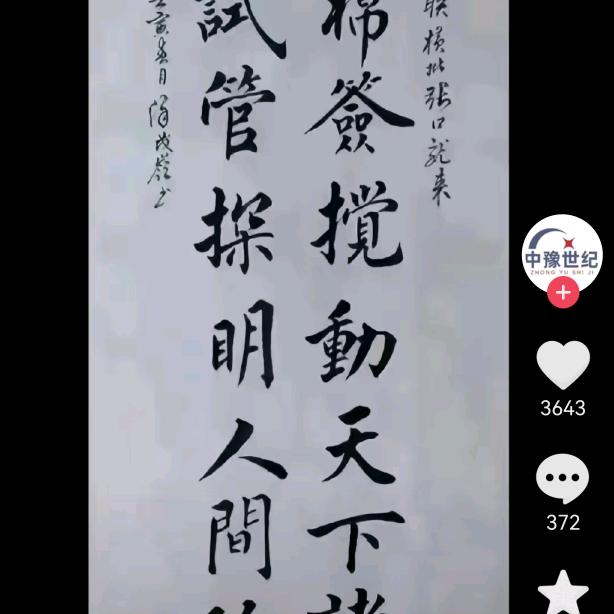 聯橫批張口就来
棉簽攪動天下諸
試管探明人間
壬寅春日
中豫世纪
ZHONG YU SHI JI
3643
372